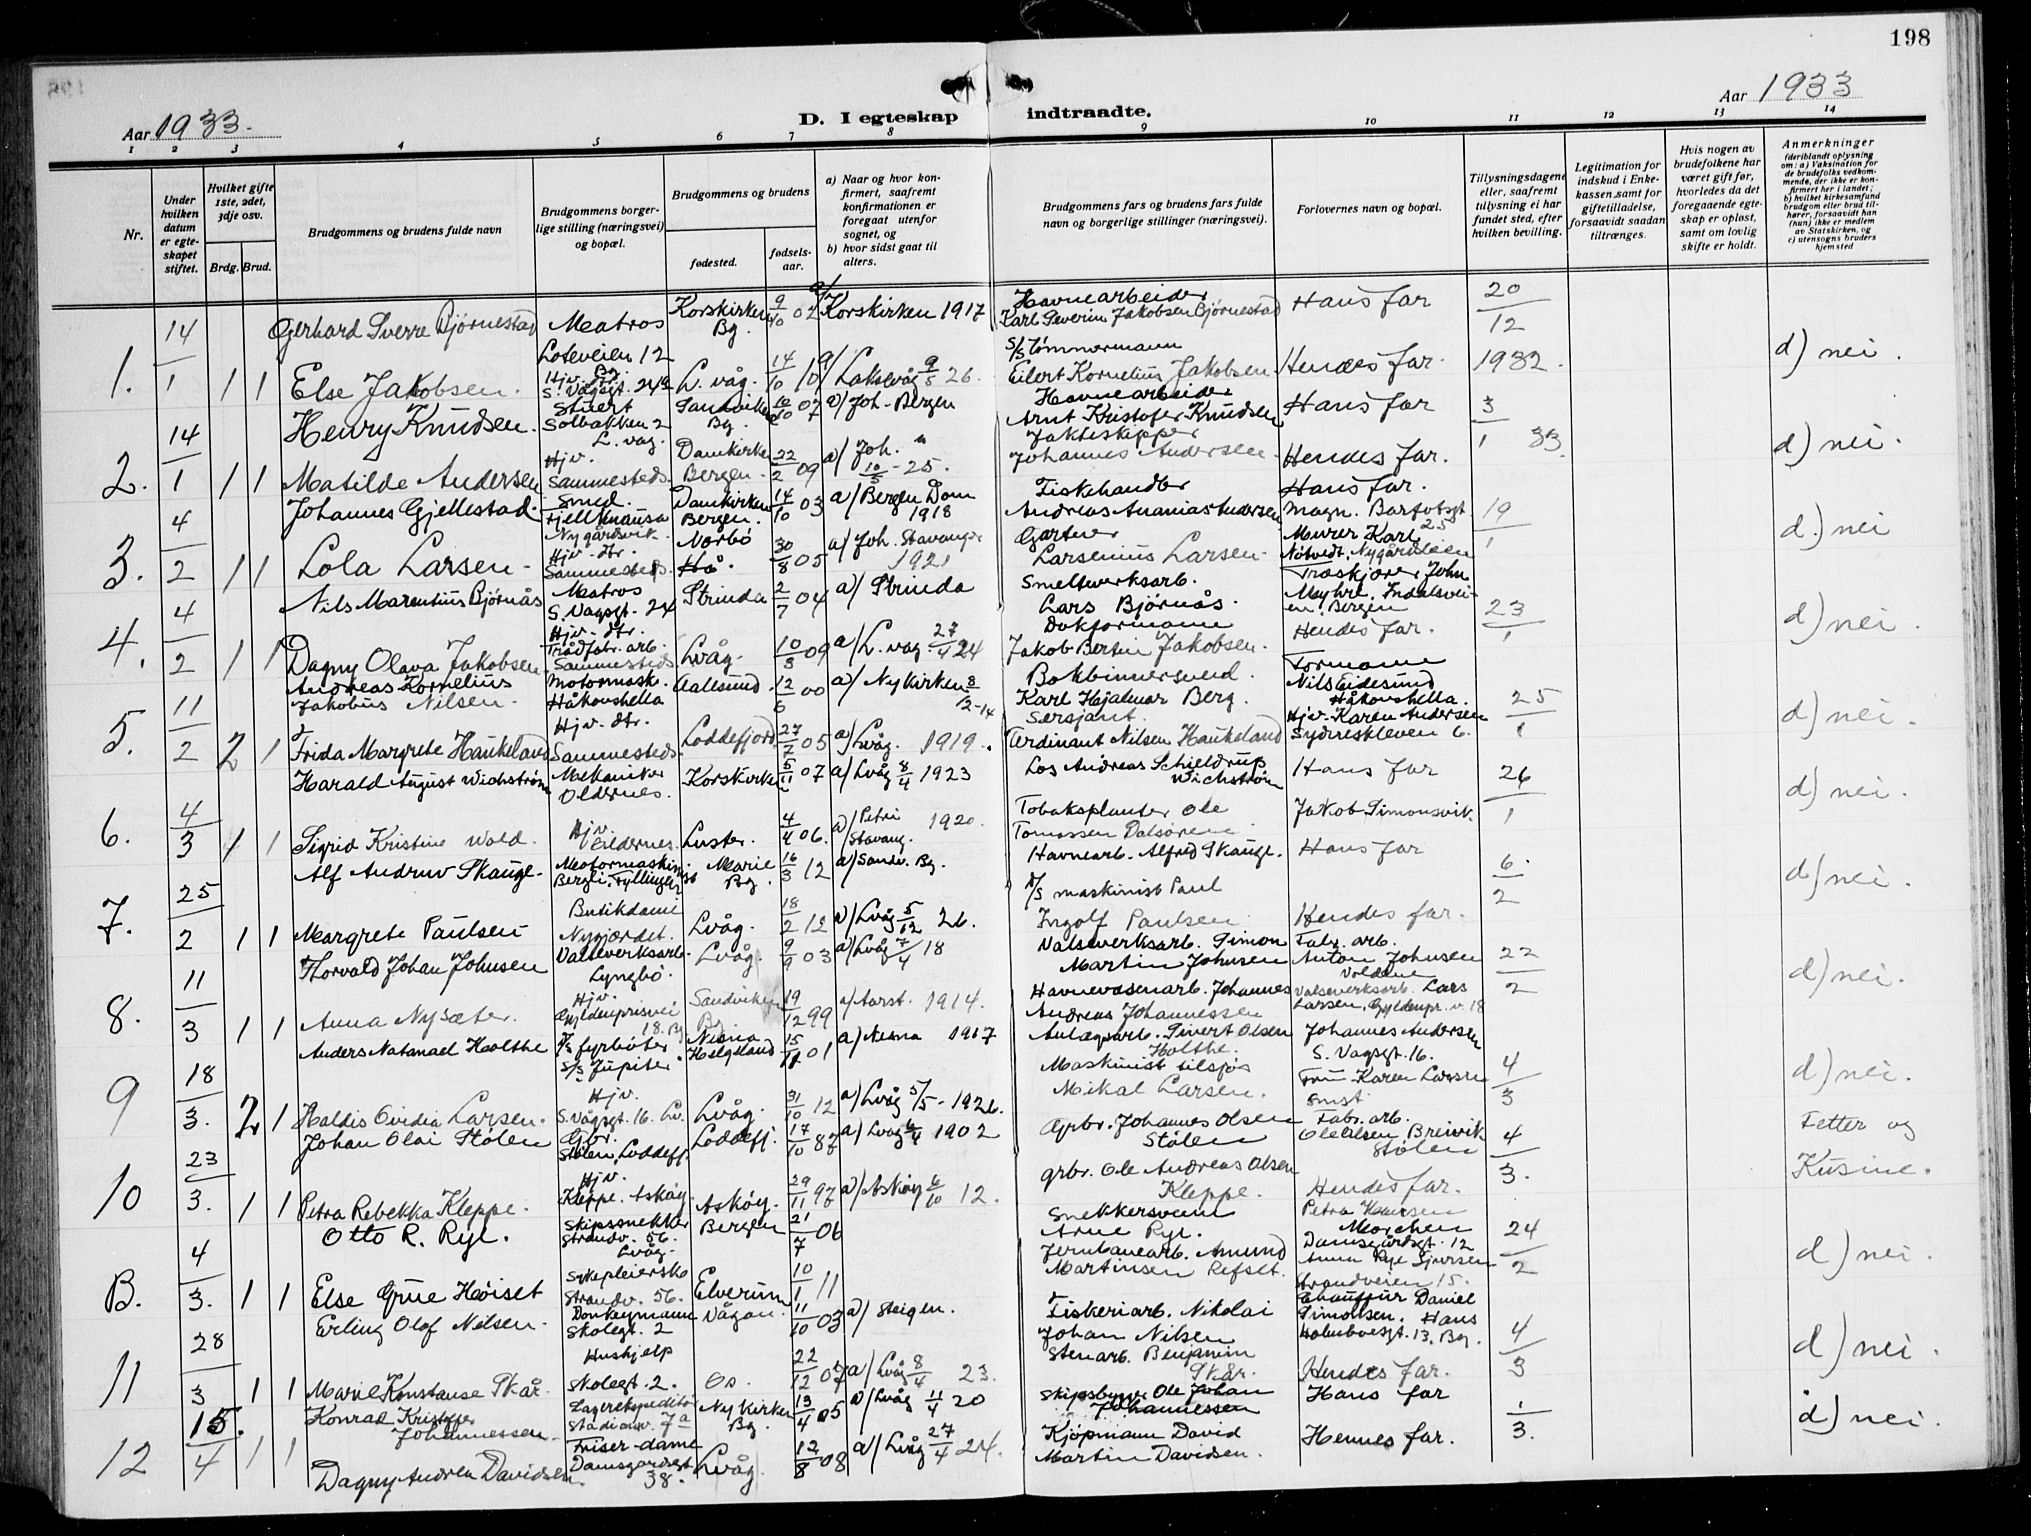 198
Aar 1933.
D. I egteskap indtraadte.
Aar 1933
1 2 3 4 5 6 7 8 9 10 11 12 13 14
Nr.
Under hvilken datum er egteskapet stiftet.
Hvilket gifte 1ste, 2det, 3dje osv.
Brdg. Brud.
Brudgommens og brudens fulde navn
Brudgommens borgerlige stilling (næringsvei) og bopæl.
Brudgommens og brudens
fødested.
fødselsaar.
a) Naar og hvor konfirmert, saafremt konfirmationen er foregaat utenfor sognet, og
b) hvor sidst gaat til alters.
Brudgommens fars og brudens fars fulde navn og borgerlige stillinger (næringsvei).
Forlovernes navn og bopæl.
Tillysningsdagene eller, saafremt tillysning ei har fundet sted, efter hvilken bevilling.
Legitimation for indskud i Enkekassen, samt for giftetilladelse, forsaavidt saadan tiltrænges.
Hvis nogen av brudefolkene har været gift før, hvorledes da det foregaaende egteskap er opløst, samt om lovlig skifte er holdt.
Anmerkninger
(deriblandt oplysning om: a) Vaksination for de brudefolks vedkommende, der ikke er konfirmert her i landet; b) hvilket kirkesamfund brudgom eller brud tilhører, forsaavidt han (hun) ikke er medlem av Statskirken, og c) utensogns bruders hjemsted
1. 14/1 1 1
Gerhard Sverre Bjørnestad Matros Loteveien 12 Korskirken Bg. 9/10 02 a/ Korskirken 1917 Havnearbeider Karl Severin Jakobsen Bjørnestad Hans far 20/12 1932.
Else Jakobsen. Hjv. S. Vågsgt. L. våg. 14/10 10 a/ Laksevåg 9/5 26. S/S Tømmermann Eilert Kornelius Jakobsen Hendes far. d) nei.
2. 14/1 1 1
Henry Knudsen. Stuert Solbakken 2 L. vag. Sandviken Bg. 16/10 07 a/ Joh. Bergen Havnearbeider Arnt Kristofer Knudsen Hans far 3/1 33.
Matilde Andersen Hjv. Sammesteds Domkirke Bergen. 22/2 09 a/ Joh. " 10/5 - 25. Jakteskipper Johannes Andersen. Hendes far. d) nei.
3. 4/2 1 1
Johannes Gjellestad. Smed. Nygårdsvik. Domkirken Bergen. 14/10 03 a/ Bergen Dom 1918 Fiskehandler Andreas Ananias Andersen Hans far. Magn. Barfotsgt. 25 19/1
Lola Larsen - Hjv. dtr. Sammesteds Nærbø Hå. 30/8 05 a/ Joh. Stavanger 1921 Gartner Larsenius Larsen. Murer Karl Nøtvedt, Nygårdsleien d.) nei
4. 4/2 1 1
Nils Marentius Bjørnås Matros S. Vagsgt. 24 Strinda 2/7 04 a/ Strinda Smelteverksarb. Lars Bjørnås. Træskjærer John Myhre, Indalsveien, Bergen 23/1
Dagny Olava Jakobsen Hjv. dtr. Trådfabr. arb. Sammesteds Lvåg. 10/3 09 a/ L. vag. 27/4 24 Dokformann Jakob Bertin Jakobsen. Hendes far. d) nei.
5. 11/2 2 1
Andreas Kornelius Jakobus Nilsen. Motormask. Håkonshella Aalesund. 12/6 00 a/ Nykirken 8/12-14 Bokbinnersvend. Karl Hjalmar Berg. Formann Nils Eidesund Håkonshella. 25/1
Frida Margrete Haukeland Hjv. dtr. Sammesteds Loddefjord 27/7 05 a/ Lvåg. 1919. Sersjant. Ferdinant Nilsen Haukeland Hjv. Karen Andersen Sydneskleven 6. d) nei.
6. 4/3 1 1
Harald August Wichstrøm Mekaniker Oldernes. Korskirken 5/11 07 a/ Lvåg 8/4 1923 Los Andreas Schieldrup Wichstrøm Hans far 26/1
Sigrid Kristine Wold. Hjv. Luster. 4/4 06. a/ Petri Stavang. 1920. Tobaksplanter Ole Tomassen Dalsøren Jakob Simonsvik d) nei.
7. 25/2 1 1
Alf Andrew Skauge. Motormaskinist Bergli, Fyllingen Marie Bg. 16/3 12 a/ Sandv. Bg. Havnearb. Alfred Skauge. Hans far 6./2
Margrete Paulsen Butikdame Nygjærdet. Lvåg. 18/2 12 a/ Lvåg 5/12 26. D/S maskinist Paul Ingolf Paulsen Hendes far. d) nei.
8. 11/3 1 1
Thorvald Johan Johnsen Valseverksarb. Lyngbø. Lvåg. 9/9 03 a/ Lvåg 7/4 18 Valseverksarb. Simon Martin Johnsen Fabr. arb. Anton Johnsen 22/2
Anna Nysæter. Hjv. Gyldenprisvei 18. Bg Sandviken Bg. 19/12 99 a/ Aarst. 1914. Havnevæsenarb. Johannes Andreas Johannessen Valseverksarb. Lars Larsen, Gyldenpr. v. 18 d) nei.
9 18/3. 2 1
Anders Natanael Holthe fyrbøter S/S Jupiter Nesna Helgeland 15/11 01 a/ Nesna 1917 Anlægsarb. Sivert Olsen Holthe. Johannes Andersen S. Vagsgt. 16. 4/3
Haldis Ovidia Larsen. Hjv. S. Vågsgt. 16. Lv. Lvåg. 31/10 12 a/ Lvåg 5/5 - 1926. Maskinist tilsjøs Mikal Larsen. Fru Karen Larsen smst d) nei.
10 23/3. 1 1
Johan Olai Stølen Gbr. Stølen, Loddefj. Loddefj. 17/10 87 a/ Lvåg 6/4 1902 Gbr. Johannes Olsen Stølen Fabr. arb. Ole Olsen Breivik Stølen 4/3. Fetter og Kusine.
Petra Rebekka Kleppe. Hjv. Kleppe. Askøy. Askøy. 29/11 97 a/ Askøy 6/10 12. grbr. Ole Andreas Olsen Kleppe. Hendes far.
B. 4/3. 1 1
Otto R. Rye. Skipssnekker Strandv. 56. Lvåg. Bergen 21/7 06 Snekkersvenn Arne Rye. Petra Morchen Damsgårdsgt. 12 24/2
Else Grue Høiset Sykepleierske Strandv. 56. Elverum 10/1 11 Jernbanearb. Amund Martinsen Refset. Anna Rye Sjursen Strandveien 15. d) nei.
11 28/3 1 1
Erling Olof Nilsen. Donkeymann Skolegt. 2 Vågan. 11/10 03 a) Steigen. Fiskeriarb. Nikolai Johan Nilsen Chauffør Daniel Simonsen. Hans Holmboesgt. 13. Bg. 4/3
Marie Konstanse Skår. Hushjelp Skolegt. 2. Os. 22/12 07 a/ Lvåg 8/4 23. Stenarb. Benjamin Skår. Hendes far. d) nei.
12 15./4 1 1
Konrad Kristoffer Johannessen Lagerekspeditør Stadionv. 7a Nykirken Bg. 13/4 05 a/ Lvåg 11/4 20 Skipsbygger Ole Johan Johannessen Hans far 1/3.
Dagny Andrea Davidsen Friser-dame Damsgårdsgt 38. Lvåg. 12/8 08 a/ Lvåg 27/4 24. Kjøpmann David Martin Davidsen. Hennes far. d) nei.